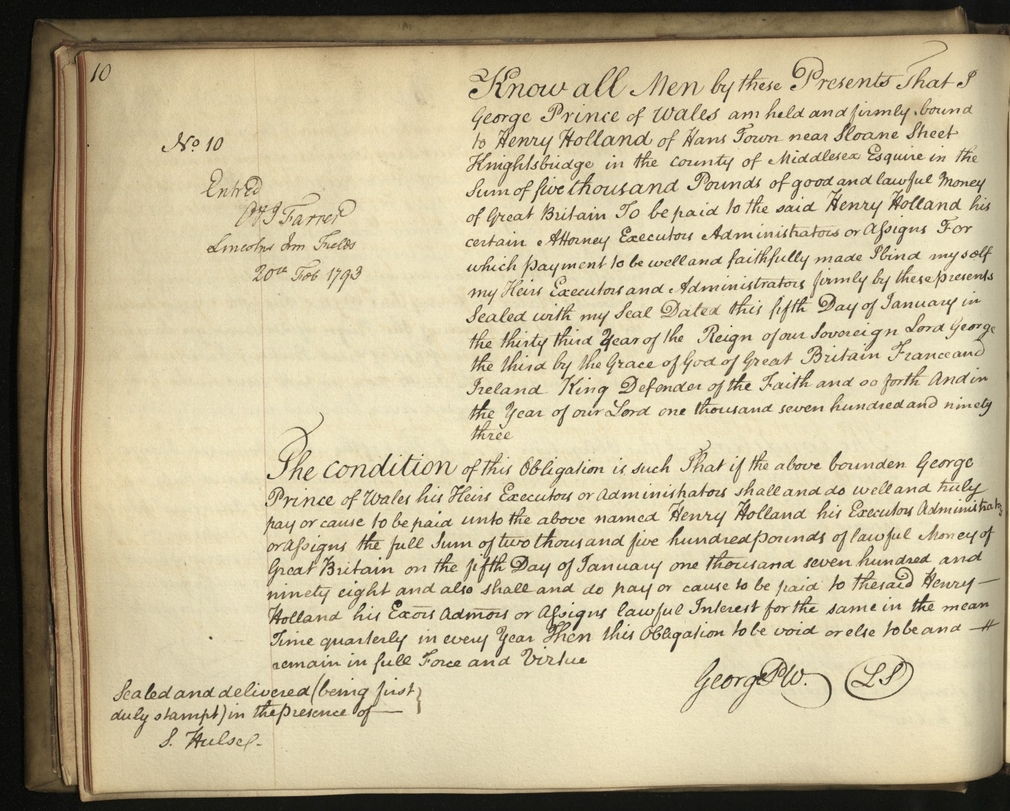 10
No. 10
Entred
J Farrer
Lincolns Inn Fields
20th Feb 1793
Know all Men by these Presents That I
George Prince of Wales am held and firmly bound
to Henry Holland of Hans Town near Sloane Street
Knightsbridge in the County of Middlesex Esquire in the
Sum of five thousand Pounds of good and lawful Money
of Great Britain To be paid to the said Henry Holland his
certain Attorney Executors Administrators or Assigns For
which payment to be well and faithfully made I bind myself
my Heirs Executors and Administrators firmly by these presents
Sealed with my Seal Dated this fifth Day of January in
the thirty third Year of the Reign of our Sovereign Lord George
the third by the Grace of God of Great Britain France and
Ireland King Defender of the Faith and so forth And in
the Year of our Lord one thousand seven hundred and ninety
three
The Condition of this Obligation is such That if the above bounden George
Prince of Wales his Heirs Executors or Administrators shall and do well and truly
pay or cause to be paid unto the above named Henry Holland his Executors Administrators
or Assigns the full Sum of two thousand five hundred pounds of lawful Money of
Great Britain on the fifth Day of January one thousand seven hundred and
ninety eight and also shall and do pay or cause to be paid to the said Henry —
Holland his Exors Admors or Assigns lawful Interest for the same in the mean
Time quarterly in every Year Then this Obligation to be void or else to be and —
remain in full Force and Virtue
George P W. LS
Sealed and delivered (being first
duly stampt) in the presence of —
S. Hulse